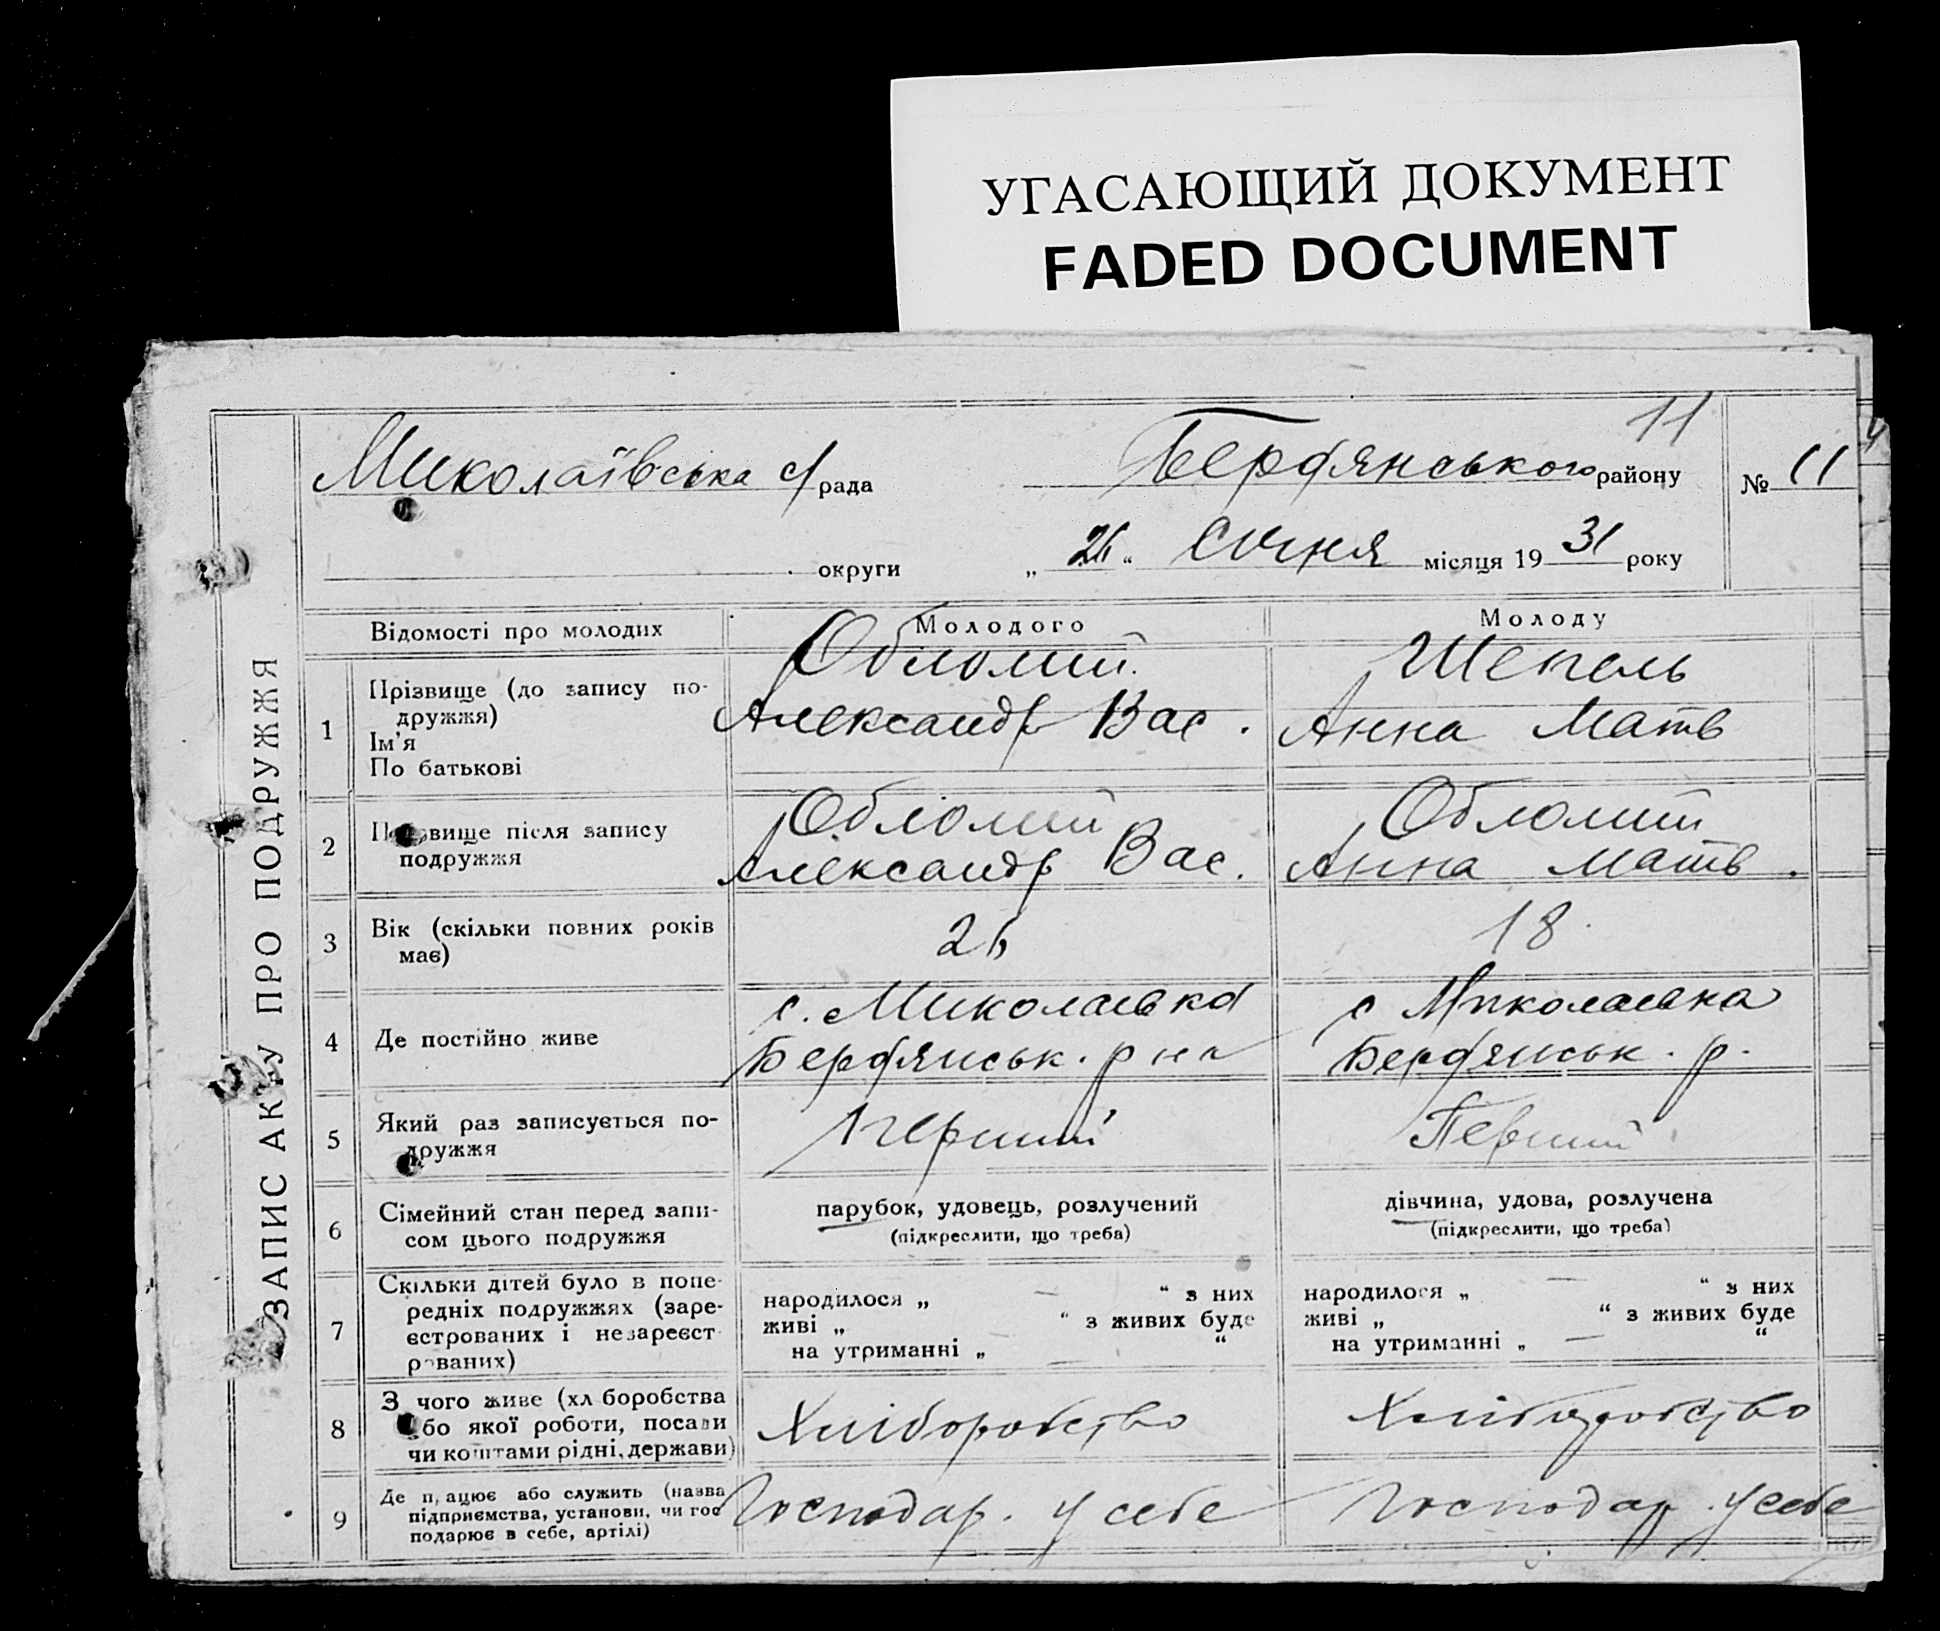 УГАСАЮЩИЙ ДОКУМЕНТ
FADED DOCUMENT
11
Миколаївська с/рада Бердянського району № 11
округи „ 26 “ Січня місяця 19 31 року
ЗАПИС АКТУ ПРО ПОДРУЖЖЯ
Відомості про молодих Молодого Молоду
1 Прізвище (до запису по-
дружжя)
Ім'я
По батькові
Обломий.
Александр Вас.
Шепель
Анна Матв
2 Прізвище після запису
подружжя
Обломий
Александр Вас.
Обломий
Анна Матв.
3 Вік (скільки повних років
має)
26
18
4 Де постійно живе
с. Миколаевка
Бердянськ. р на
с Миколаевка
Бердянськ. р.
5 Який раз записується по-
дружжя
Перший
Перший
6 Сімейний стан перед запи-
сом цього подружжя
парубок, удовець, розлучений
(підкреслити, що треба)
дівчина, удова, розлучена
(підкреслити, що треба)
7 Скільки дітей було в попе-
редніх подружжях (заре-
єстрованих і незареєст
рованих)
народилося „ — “ з них
живі „ “ з живих буде
на утриманні „ — “
народилося „ — “ з них
живі „ “ з живих буде
на утриманні „ — “
8 З чого живе (хліборобства
або якої роботи, посади
чи коштами рідні, держави)
Хліборобство
Хліборобство
9 Де працює або служить (назва
підприємства, установи, чи гос
подарює в себе, артілі)
Господар. у себе
Господар. у себе